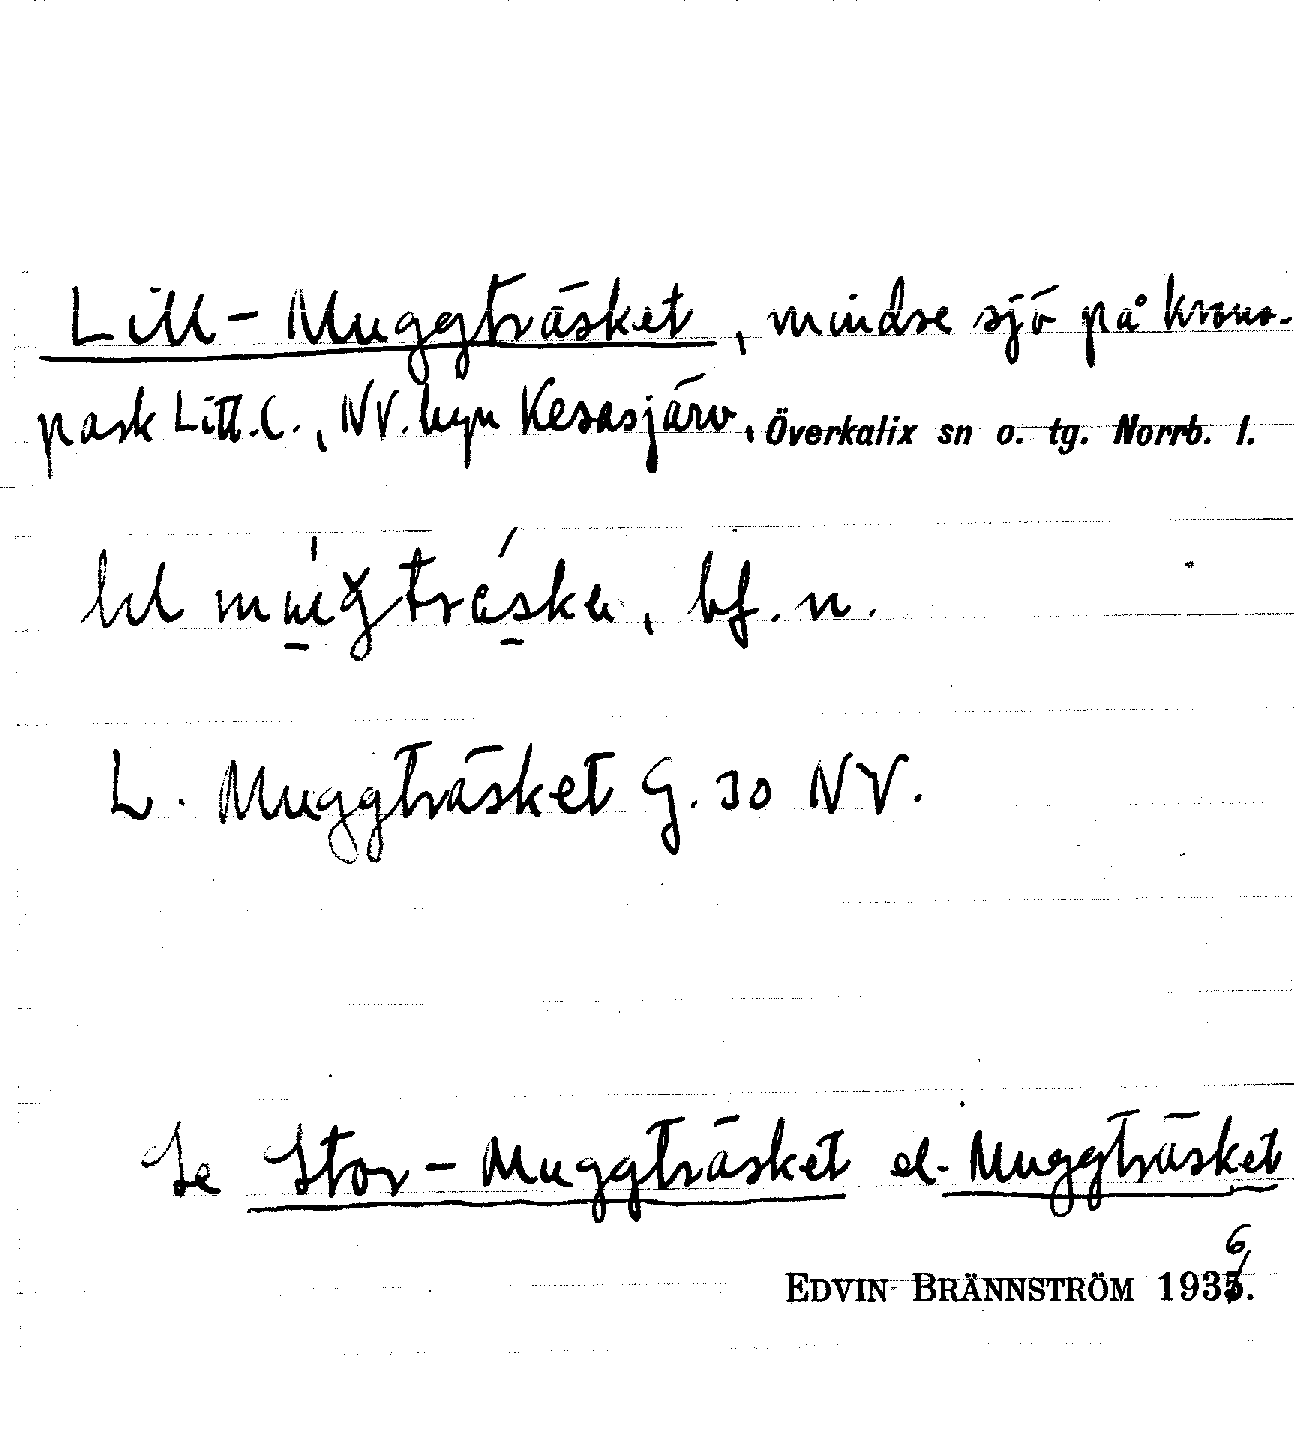 Lill-Muggträsket, mindre sjö på krono-
park Litt. C., NV. byn Kesasjärv, Överkalix sn o. tg. Norrb. l.
bf. n.
L. Muggträsket G. 30 NV.
Se Stor-Muggträsket el. Muggträsket
6
EDVIN BRÄNNSTRÖM 1935.